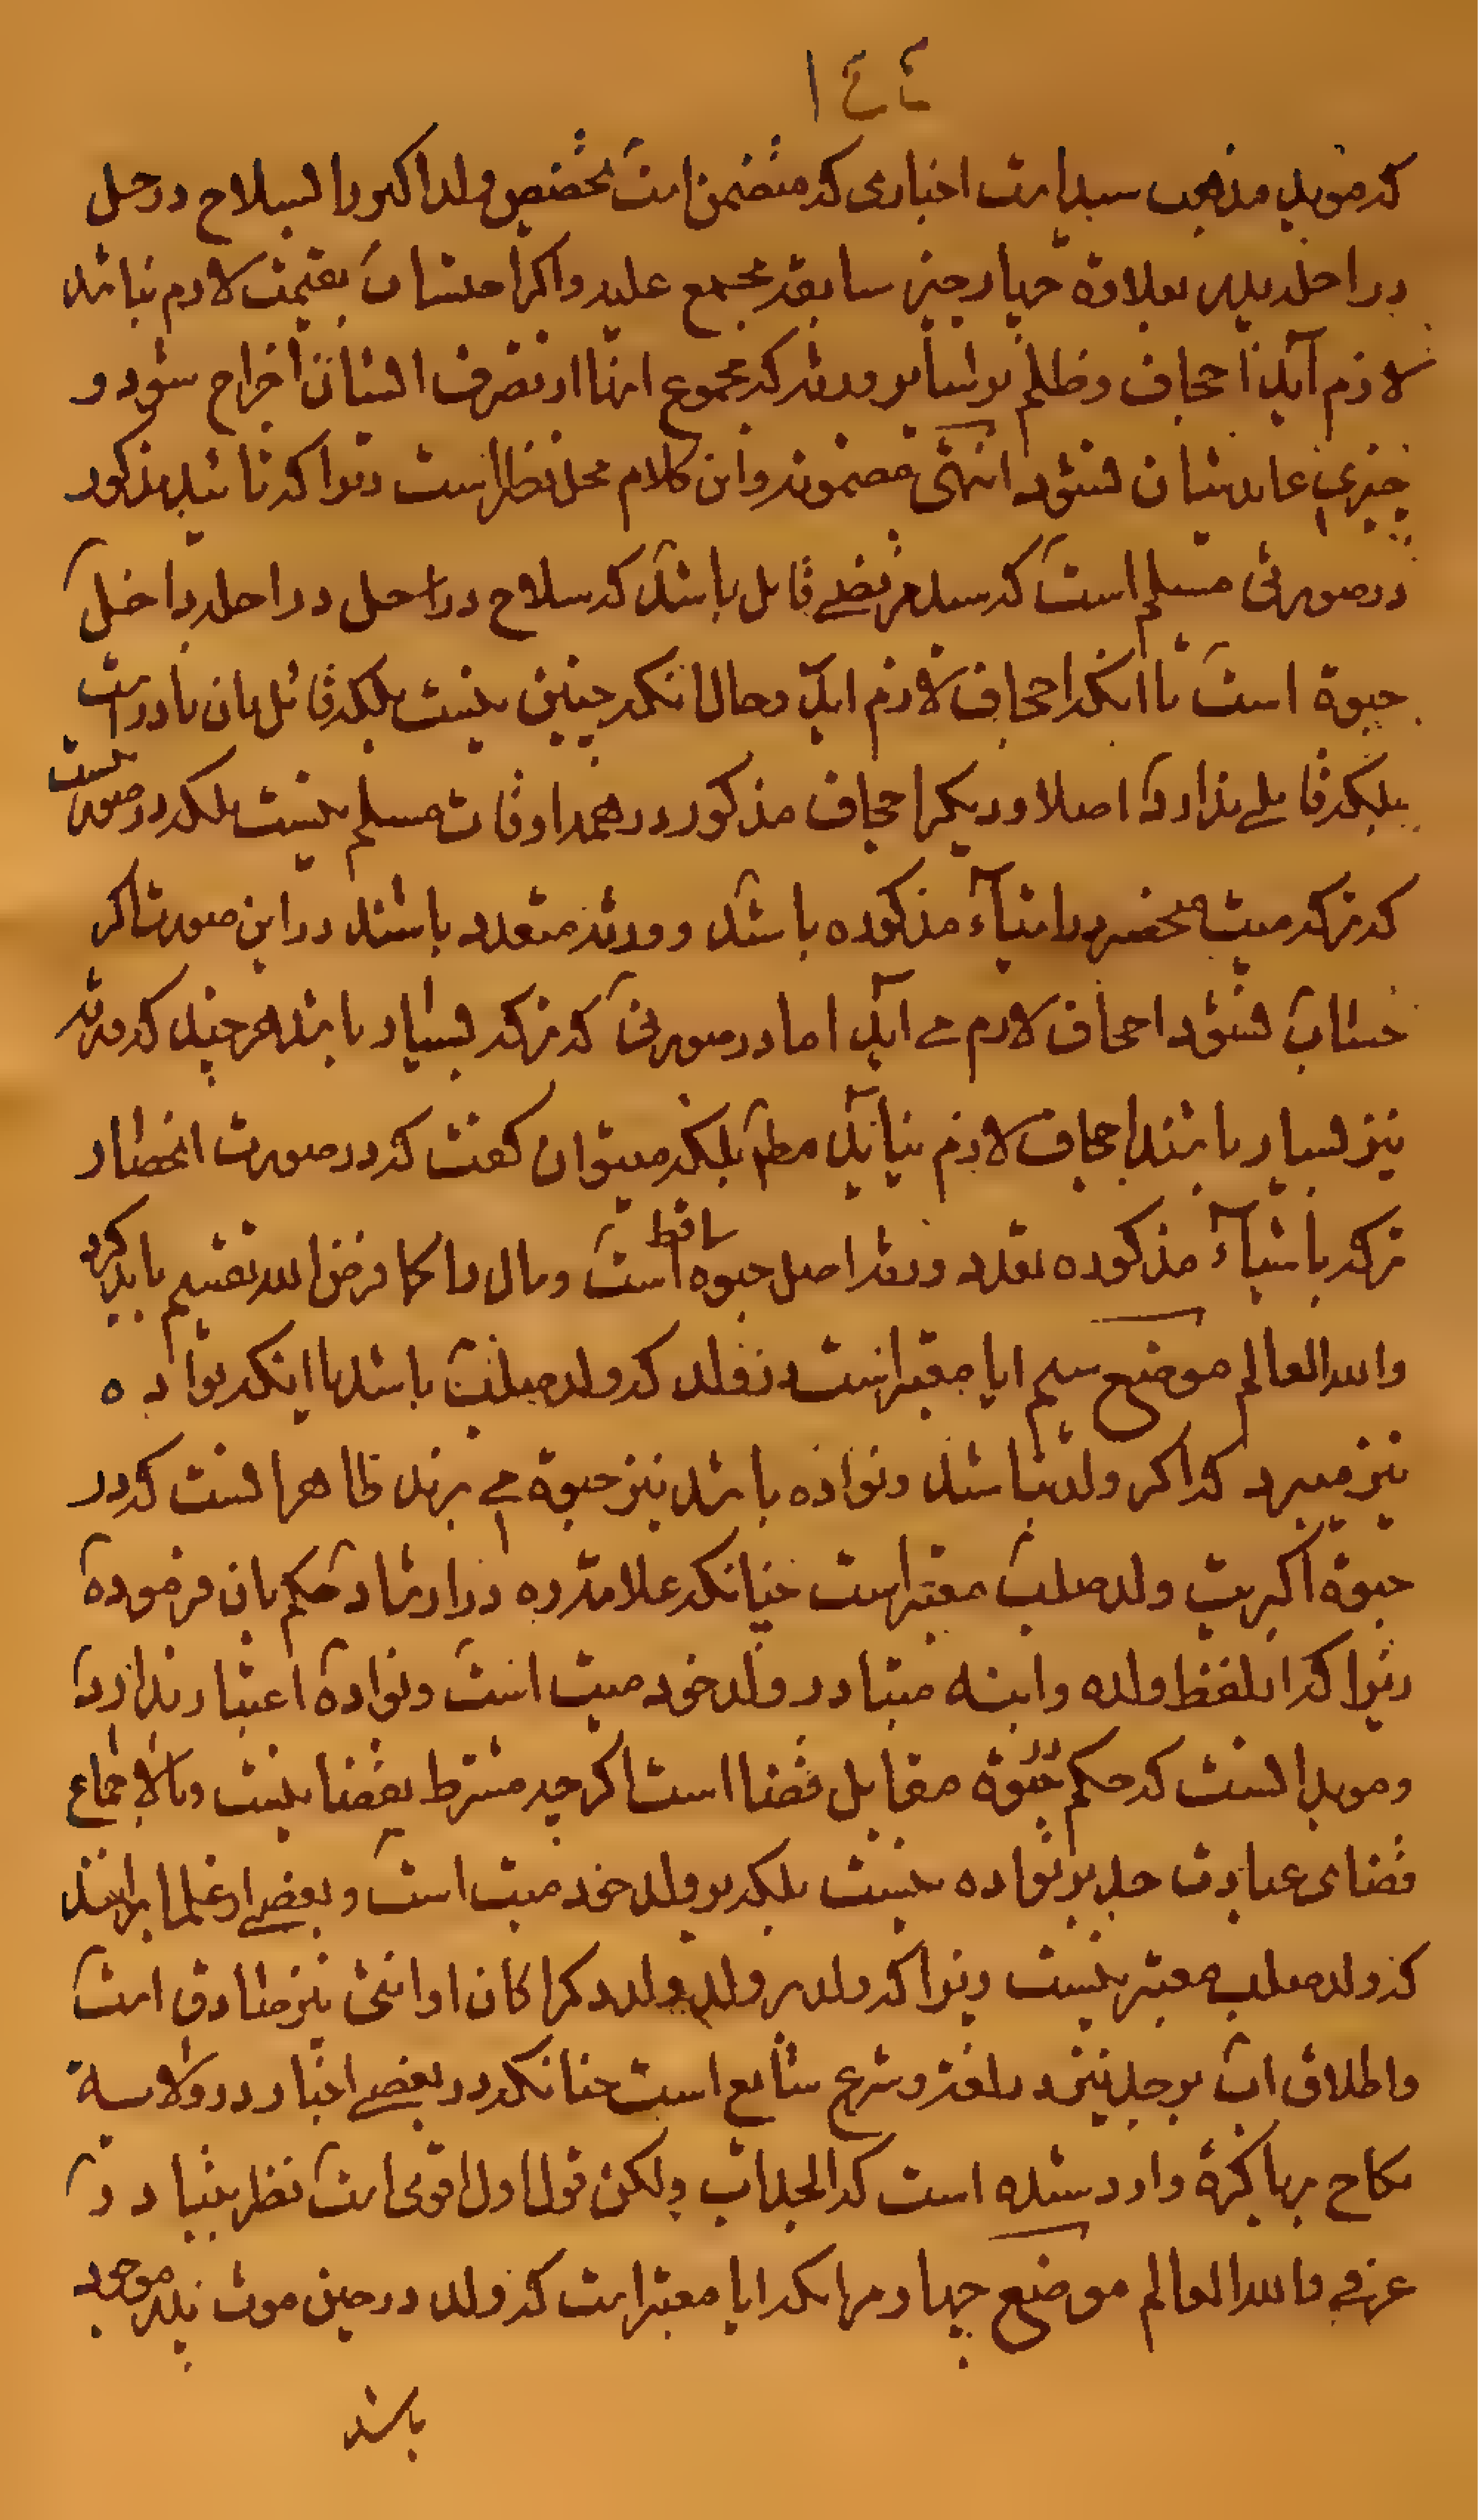 ۱۴۴
که موید مذهب سید است اخباری که متضمن است تخصیص ولد اکبر را لسلاح و رحل
و راحله پدر بعلاوة چهار چیز سابقه مجمع علیه و اکر احتساب بقیمت لازم نباشد
لازم آید احجاف و ظلم بر سایر ورثه که مجموع اینها از تصرف ایشان اخراج شود و
چیزی عاید شان نشود انتهی مضمونه و این کلام محل نظر است زیرا که تائید مذکور
در صورتی مسلم است که سید مرتضی قایل باشد که سلاح و راحل و راحله داخل
حبوة است تا انکه احجاف لازم اید و حال انکه چنین نیست بلکه قائل بان نادر است
بلکه قایلی ندارد اصلا و دیکر احجاف مذکور در همه اوقات مسلم نیست بلکه در صورتیست
که ترکه میت منحصر در اشیآء مذکوره باشد و ورثه متعدد باشند در این صورت اکر
حساب نشود احجاف لازم می آید اما در صورتی که ترکه بسیار باشد هر چند که ورثه
نیز بسیار باشند احجاف لازم نیاید مطم بلکه میتوان کفت که در صورت انحصار
ترکه باشیآء مذکوره تعدد ورثه اصل حبوه ساقط است و مال را کما فرض الله تقسیم باید کرد
والله العالم موضع سیم ایا معتبر است در ولد که ولد صلبی باشد یا اینکه نواده
نیز میبرد که اکر ولد نباشد و نواده باشد نیز حبوة می برند ظاهر انست که در
حبوة اکبریت ولد صلبی معتبر است چنانکه علامه ره در ارشاد حکم بان فرموده
زیرا که از لفظ ولده و ابنه متبادر ولد خود میت است و نواده اعتبار ندارد
و موید انست که حکم حبوة مقابل قضا است اکرچه مشترط بقضا نیست و بالاجماع
قضای عبادت جد بر نواده نیست بلکه بر ولد خود میت است و بعضی از علما برانند
که ولد صلبی معتبر نیست زیرا که ولد بر ولد ولد ذکرا کان او انثی نیز صادق است
و اطلاق اب بر جد نیز در لغة و شرع شایع است چنانکه در بعضی اخبار در ولایة
نکاح بر باکرة وارد شده است که الجد اب ولیکن قول اول اقوی است نظر بتبادر
عرفی والله العالم موضع چهارم انکه ایا معتبر است که ولد در حین موت پدر موجود
باشد